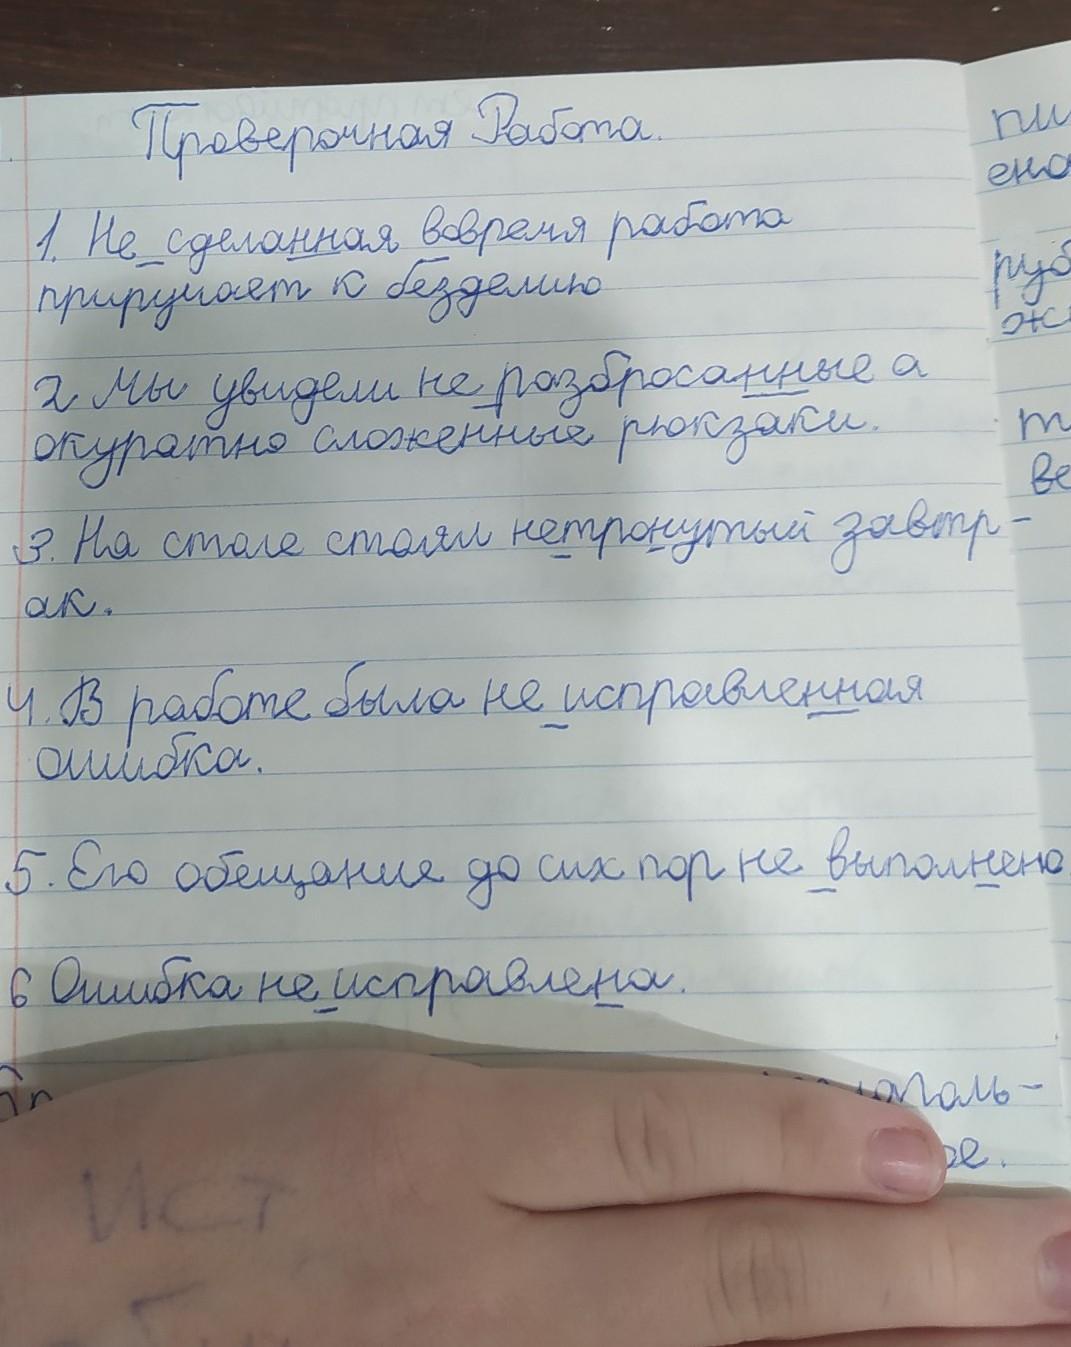 Проверочная Работа.
1. Не сделанная вовремя работа
приручает к безделию
2 Мы увидели не разбросанные а
окуратно сложенные рюкзаки.
3. На столе стоял нетронутый завтр-
ак.
4. В работе была не исправленная
ошибка.
5. Его обещание до сих пор не выполнено
6 Ошибка не исправлена.
ист
пи
ена
руб
т
ве